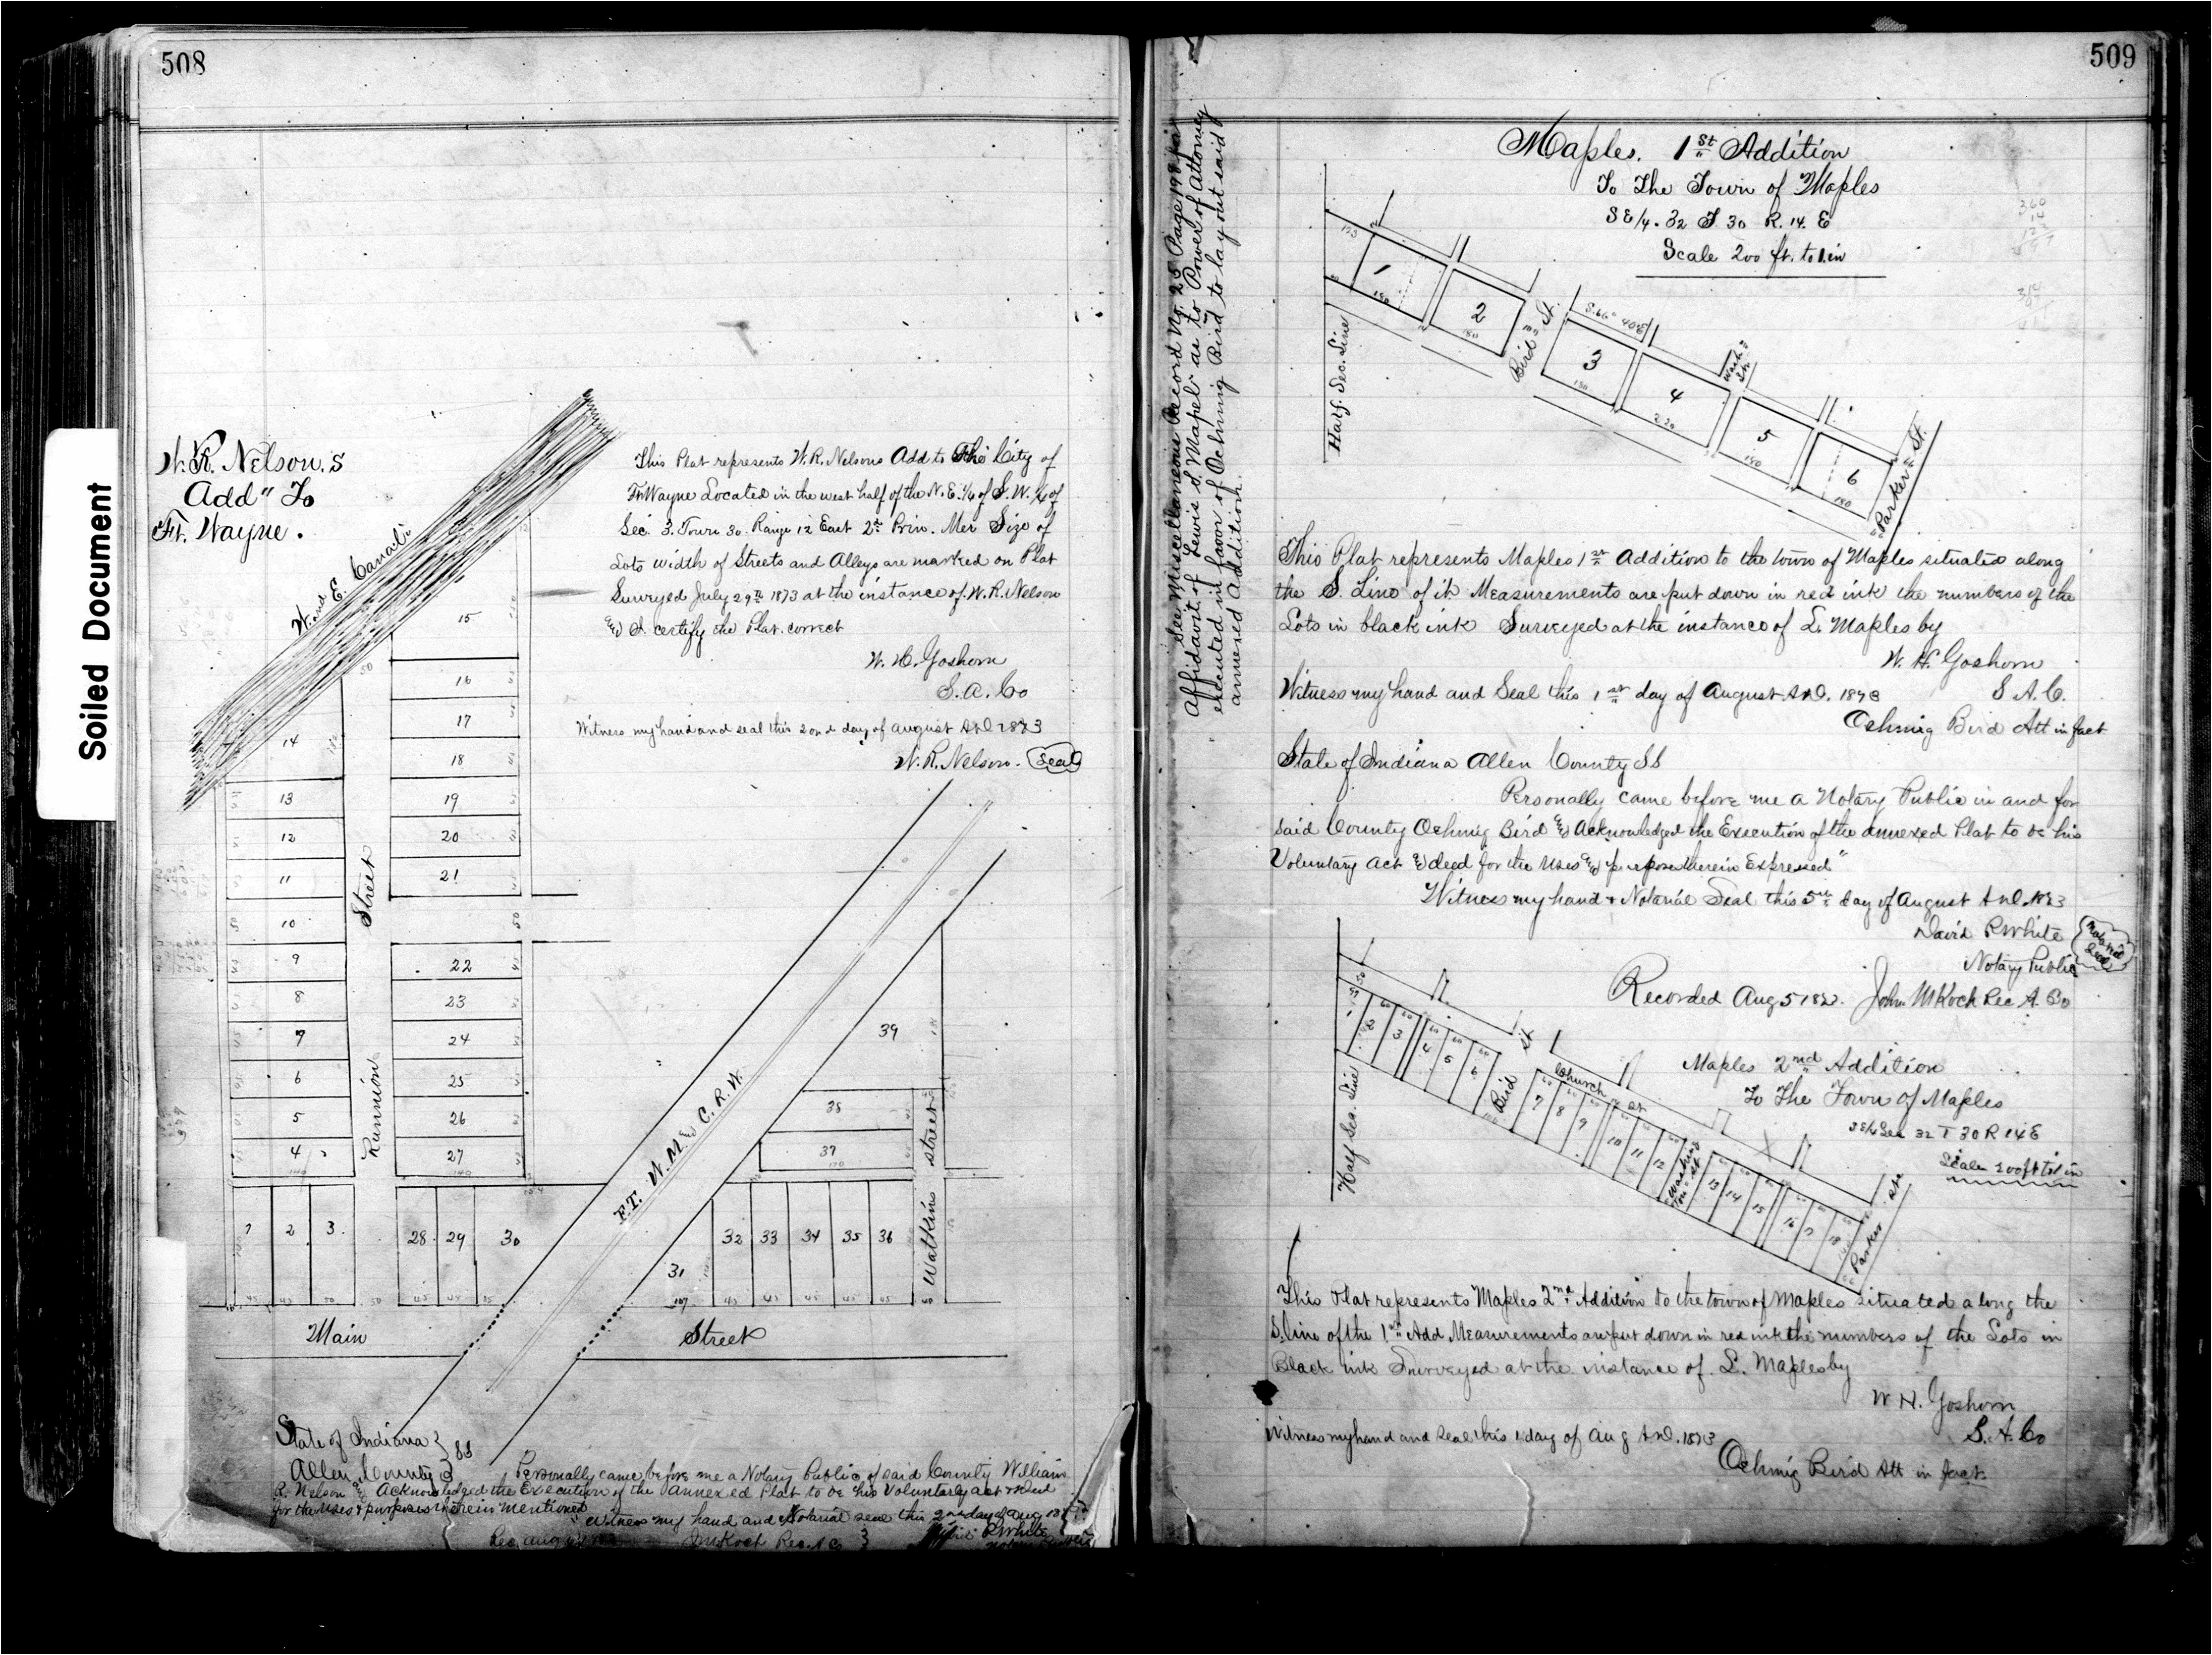 508
Soiled Document
W. R. Nelson,s
Add" To
Ft. Wayne.
W. and E. Canal
This Plat represents W. R. Nelsons Add to The City of
Ft Wayne Located in the west half of the N. E. 1/4 of S. W. 1/4 of
Sec. 3. Town 30. Range 12 East 2d Prin. Mer Size of
Lots width of Streets and Alleys are marked on Plat
Surveyed July 29th 1873 at the instance of W. R. Nelson
and I certify the Plat correct
W. H. Goshorn
S. A. Co
Witness my hand and seal this 2ond day of August A.D. 1873
W. R. Nelson. Seal
15
16
17
18
19
20
21
22
23
24
25
26
27
140
14
13
12
11
10
9
8
7
6
5
4
140
Street
Runnion
50
F.T. W. M. and C. R. W.
39
38
37
street
Watkins
1 2 3 28 29 30
31
32 33 34 35 36
107
Main Street
State of Indiana } SS
Allen County }
Personally came before me a Notary Public of said County William
R. Nelson and Acknowledged the Execution of the annexed Plat to be his Voluntary act & deed
for the uses & purposes therein mentioned
Witness my hand and Notarial seal this 2nd day of Aug
R White
Rec. Aug
J M Koch Rec. A C
509
See Miscellaneous Record No. 25 Page 198 for
Affidavit of Lewis S. Mapel as to Power of Attorney
executed in favor of Ochmig Bird to lay out said
annexed Addition.
Maples. 1St Addition
To The Town of Maples
S E 1/4. 32 T. 30 R. 14. E
Scale 200 ft. to 1.in
1
2
3
4
5
6
S. 66° 40' E
Half. Sec. Line
Bird St.
Wash. St.
Parker St.
This Plat represents Maples 1st Addition to the town of Maples situated along
the S. Line of it Measurements are put down in red ink the numbers of the
Lots in black ink Surveyed at the instance of L. Maples by
W. H. Goshorn
S A. C.
Witness my hand and Seal this 1st day of August A.D. 1873
Ochmig Bird Att in fact
State of Indiana Allen County SS
Personally came before me a Notary Public in and for
said County Ochmig Bird and Acknowledged the Execution of the annexed Plat to be his
Voluntary act and deed for the uses and purposes therein Expressed"
Witness my hand & Notarial Seal this 5th day of August A.D. 1873
David R White
Notary Public
Notarial Seal
Recorded Aug 5 1873. John M Koch Rec A. Co
Maples 2nd Addition
To The Town of Maples
S E 1/4 Sec 32 T 30 R 14 E
Scale 200 ft to 1 in
1
2
3
4
5
6
7
8
9
10
11
12
13
14
15
16
17
18
Half Sec. Line
Bird St
Church St
Washing ton St
Parker Str
This Plat represents Maples 2nd Addition to the town of Maples situated along the
S. line of the 1st Add Measurements are put down in red ink the numbers of the Lots in
Black ink Surveyed at the instance of L. Maples by
W H. Goshorn
S. A. Co
Witness my hand and seal this 1 day of Aug A.D. 1873
Ochmig Bird Att in fact